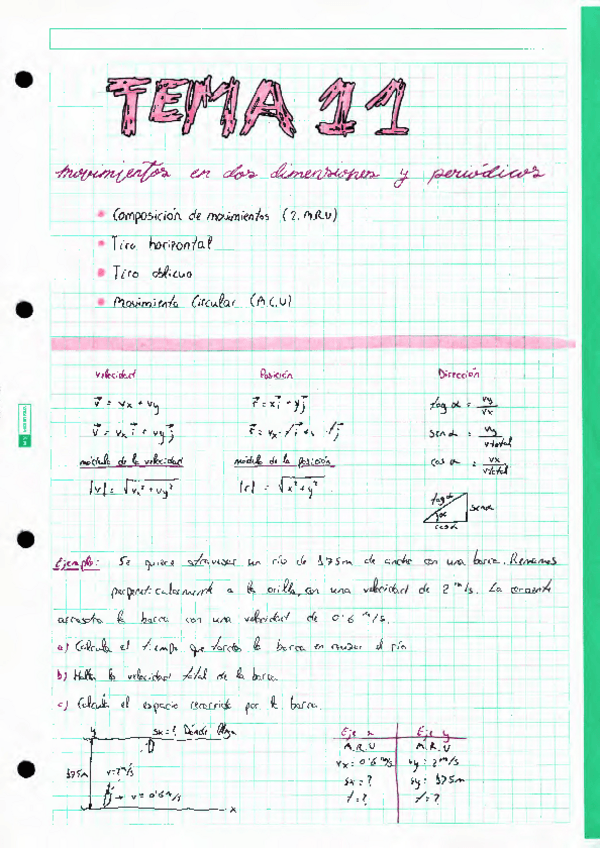 TEMA 11
movimientos en dos dimensiones y periódicos
Composición de movimientos (2. M.R.U)
Tiro horizontal
Tiro oblicuo
Movimiento Circular (M.C.U)
velocidad Posición Dirección
v⃗ = vx + vy r⃗ = x i⃗ + y j⃗ tag α = vy/vx
v⃗ = vx i⃗ + vy j⃗ sen α = vy/vtotal
módulo de la velocidad módulo de la posición cos α = vx/vtotal
|v| = √vx² + vy² |r| = √x² + y²
tag α senα
α
cosα
Ejemplo: Se quiere atravesar un río de 175m de ancho con una barca. Remamos
perpendicularmente a la orilla, con una velocidad de 2 m/s. La corriente
arrastra la barca con una velocidad de 0'6 m/s.
a) Calcula el tiempo que tarda la barca en cruzar el río
b) Halla la velocidad total de la barca.
c) Calcula el espacio recorrido por la barca.
y sx = ? Dónde llega
175m v=2m/s
v = 0'6 m/s
x
Eje x Eje y
M.R.U M.R.U
vx = 0'6 m/s vy: 2m/s
sx = ? sy: 175m
t = ? t = ?